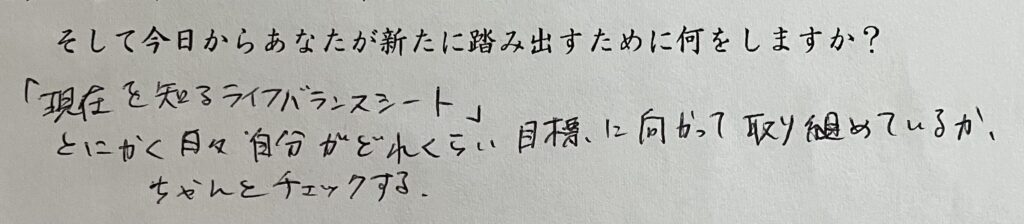 そして今日からあなたが新たに踏み出すために何をしますか？
「現在を知るライフバランスシート」
とにかく日々自分がどれくらい目標、に向かって取り組めているか、
ちゃんとチェックする.